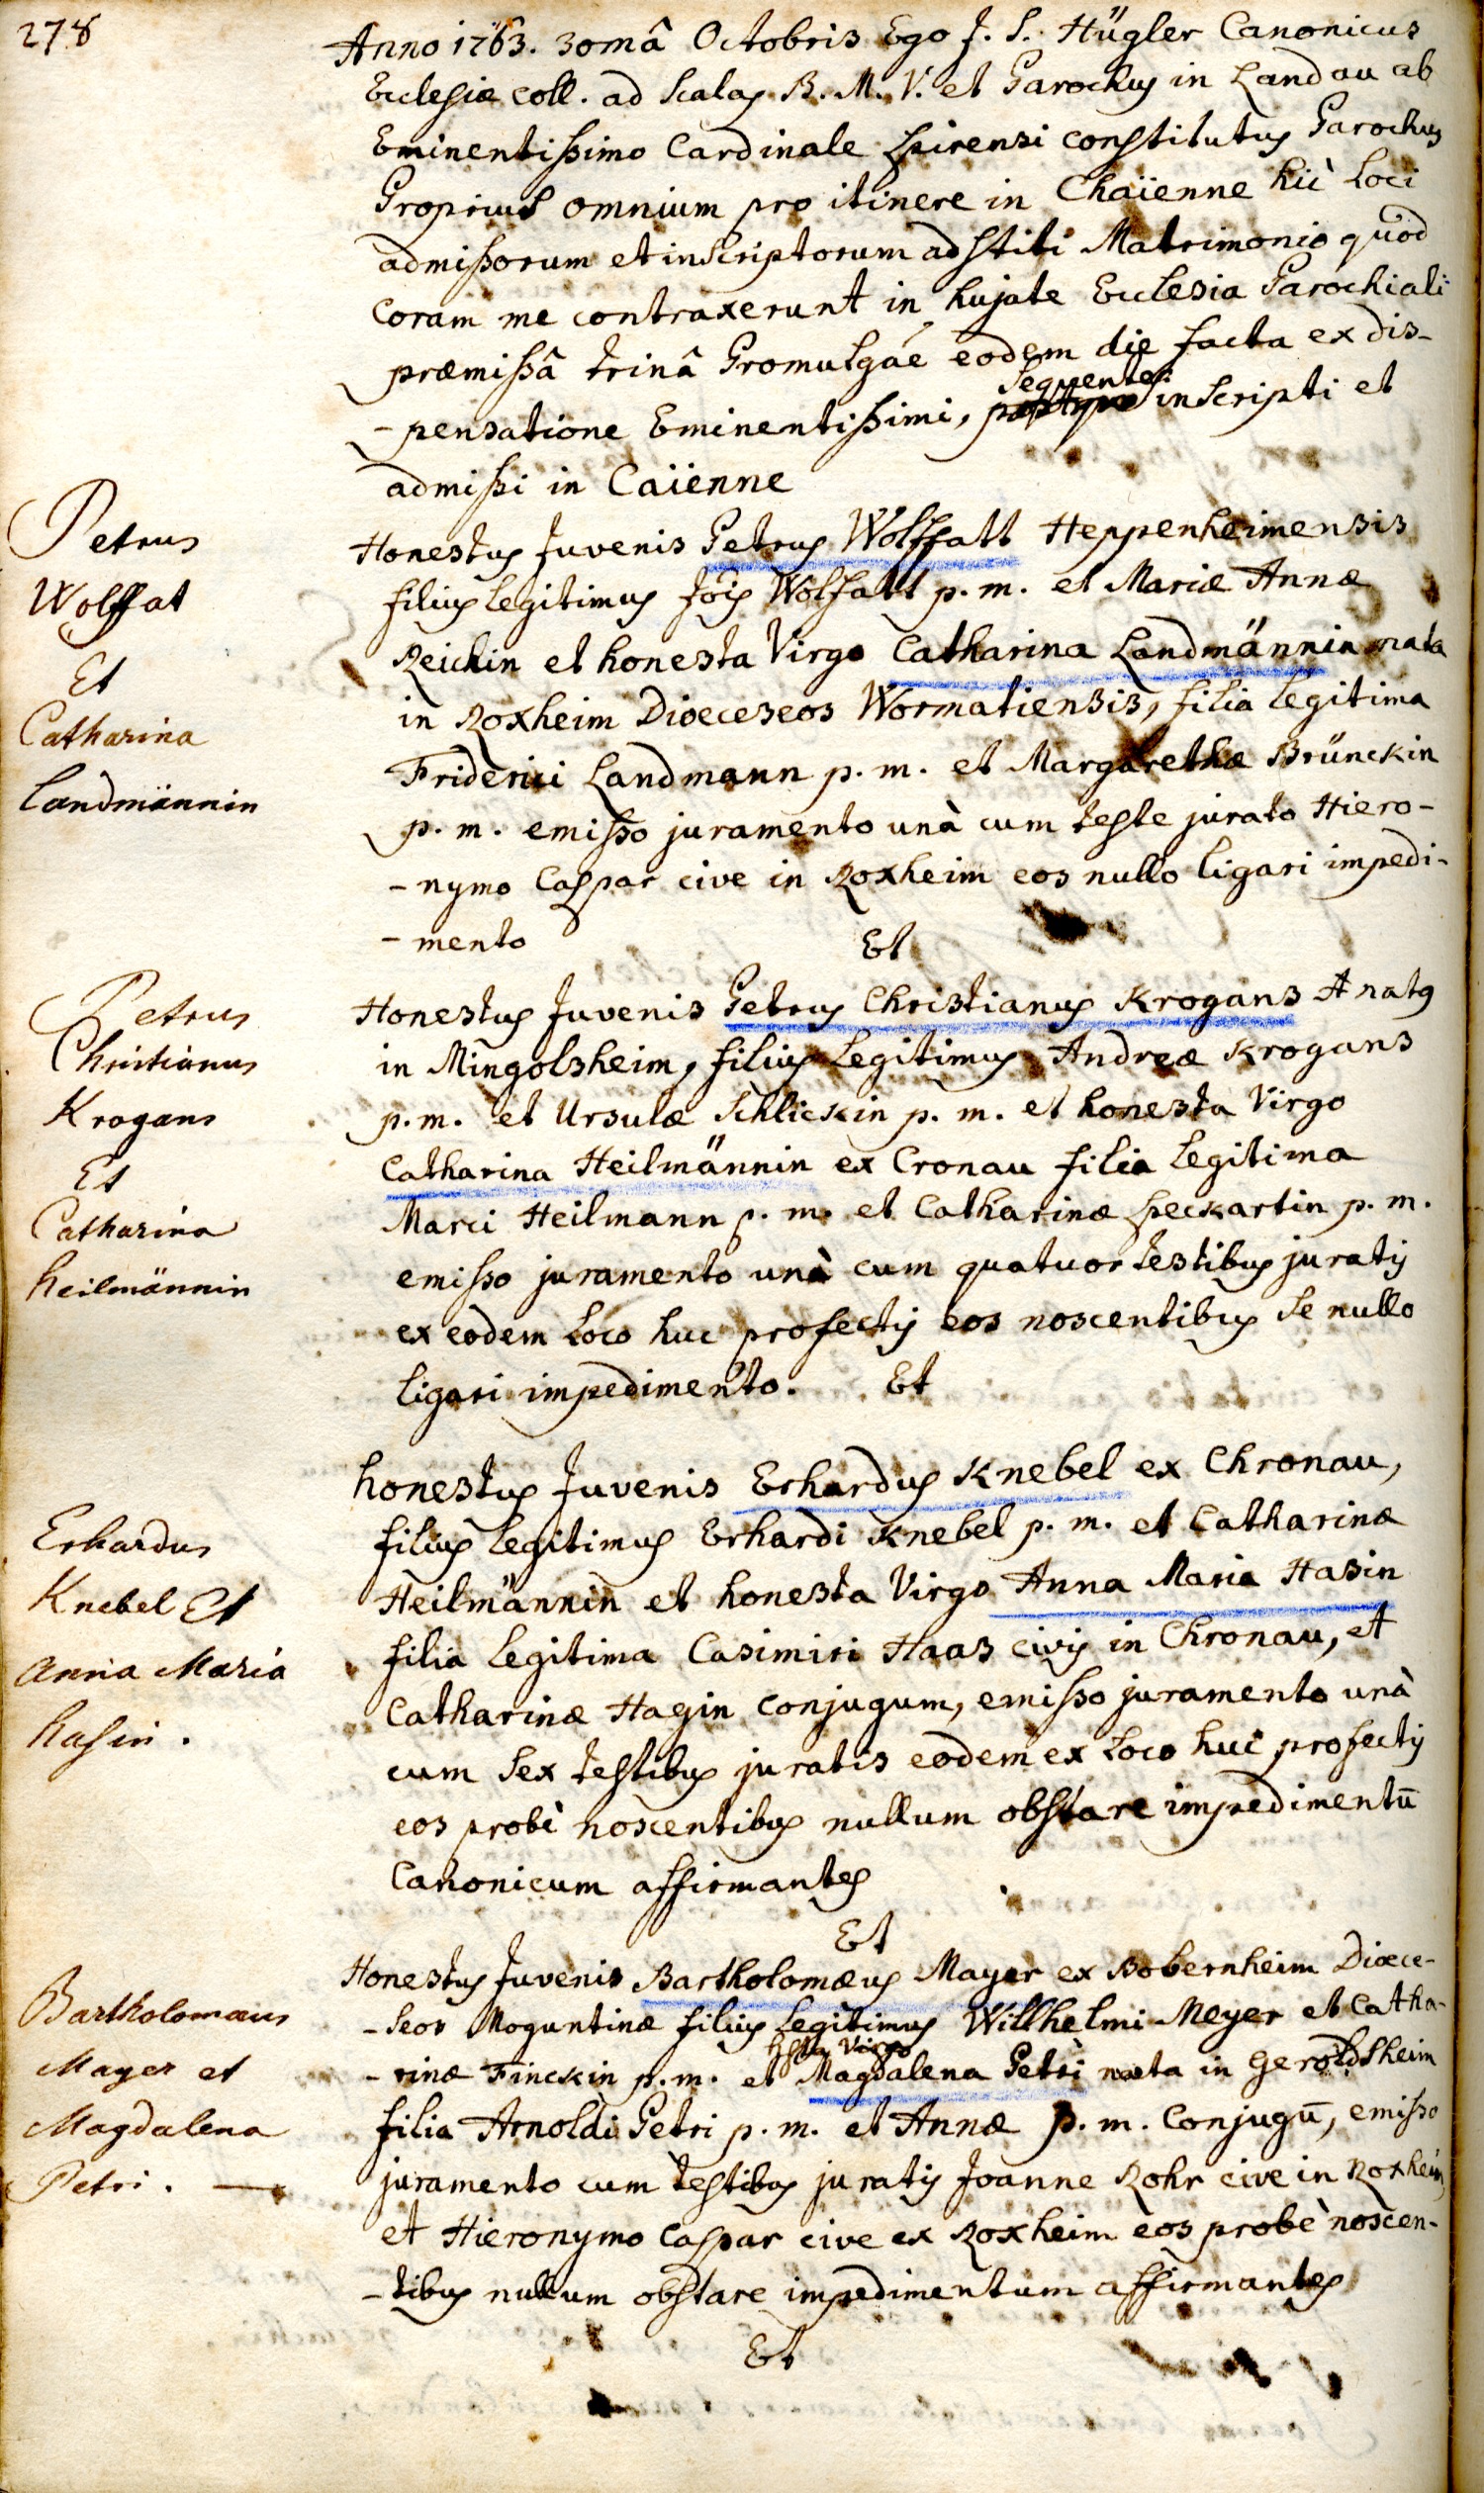 278
Anno 1763. 30mâ Octobris Ego J. S. Hügler Canonicus
Ecclesiæ coll. ad Scalas B. M. V. et Parochus in Landau ab
Eminentissimo Cardinale Spirensi constitutus Parochus
Proprius omnium pro itinere in Chaïenne hic Loci
admissorum et inscriptorum adstiti Matrimonio quod
Coram me contraxerunt in hujate Ecclesia Parochiali
præmissâ trinâ Promulgãe eodem die facta ex dis-
-pensatione Eminentissimi, sequentes inscripti et
admissi in Caïenne
Petrus
Wolffat
Et
Catharina
Landmännin
Honestus Juvenis Petrus Wolffatt Heppenheimensis
filius legitimus Jois Wolfatt p. m. et Mariæ Annæ
Reichin et honesta Virgo Catharina Landmännin nata
in Roxheim Dioeceseos Wormatiensis, filia legitima
Friderici Landmann p. m. et Margarethæ Brünckin
p. m. emisso juramento unà cum teste jurato Hiero-
-nymo Caspar cive in Roxheim eos nullo ligari impedi-
-mento
Et
Petrus
Christianus
Krogans
Et
Catharina
Heilmännin
Honestus Juvenis Petrus Christianus Krogans natus
in Mingolsheim, filius legitimus Andreæ Krogans
p. m. et Ursulæ Schlickin p. m. et honesta Virgo
Catharina Heilmännin ex Cronau filia legitima
Marci Heilmann p. m. et Catharinæ Speckartin p. m.
emisso juramento unà cum quatuor testibus juratis
ex eodem Loco huc profectis eos noscentibus se nullo
ligari impedimento. Et
Erhardus
Knebel Et
Anna Maria
Hasin.
honestus Juvenis Erhardus Knebel ex Chronau,
filius legitimus Erhardi Knebel p. m. et Catharinæ
Heilmännin et honesta Virgo Anna Maria Hasin
filia legitima Casimiri Haas civis in Chronau, et
Catharinæ Hagin conjugum, emisso juramento unà
cum Sex testibus juratis eodem ex Loco huc profectis
eos probè noscentibus nullum obstare impedimentū
Canonicum affirmantes
Et
Bartholomæus
Mayer et
Magdalena
Petri.
Honestus Juvenis Bartholomæus Mayer ex Bobernheim Dioece-
-seos Moguntinæ filius legitimus Willhelmi Meyer et Catha-
-rinæ Finckin p. m. et hsta Virgo Magdalena Petri nata in Geroldsheim
filia Arnoldi Petri p. m. et Annæ p. m. Conjugū, emisso
juramento cum testibus juratis Joanne Rohr cive in Roxheim
et Hieronymo Caspar cive ex Roxheim eos probè noscen-
-tibus nullum obstare impedimentum affirmantes
Et